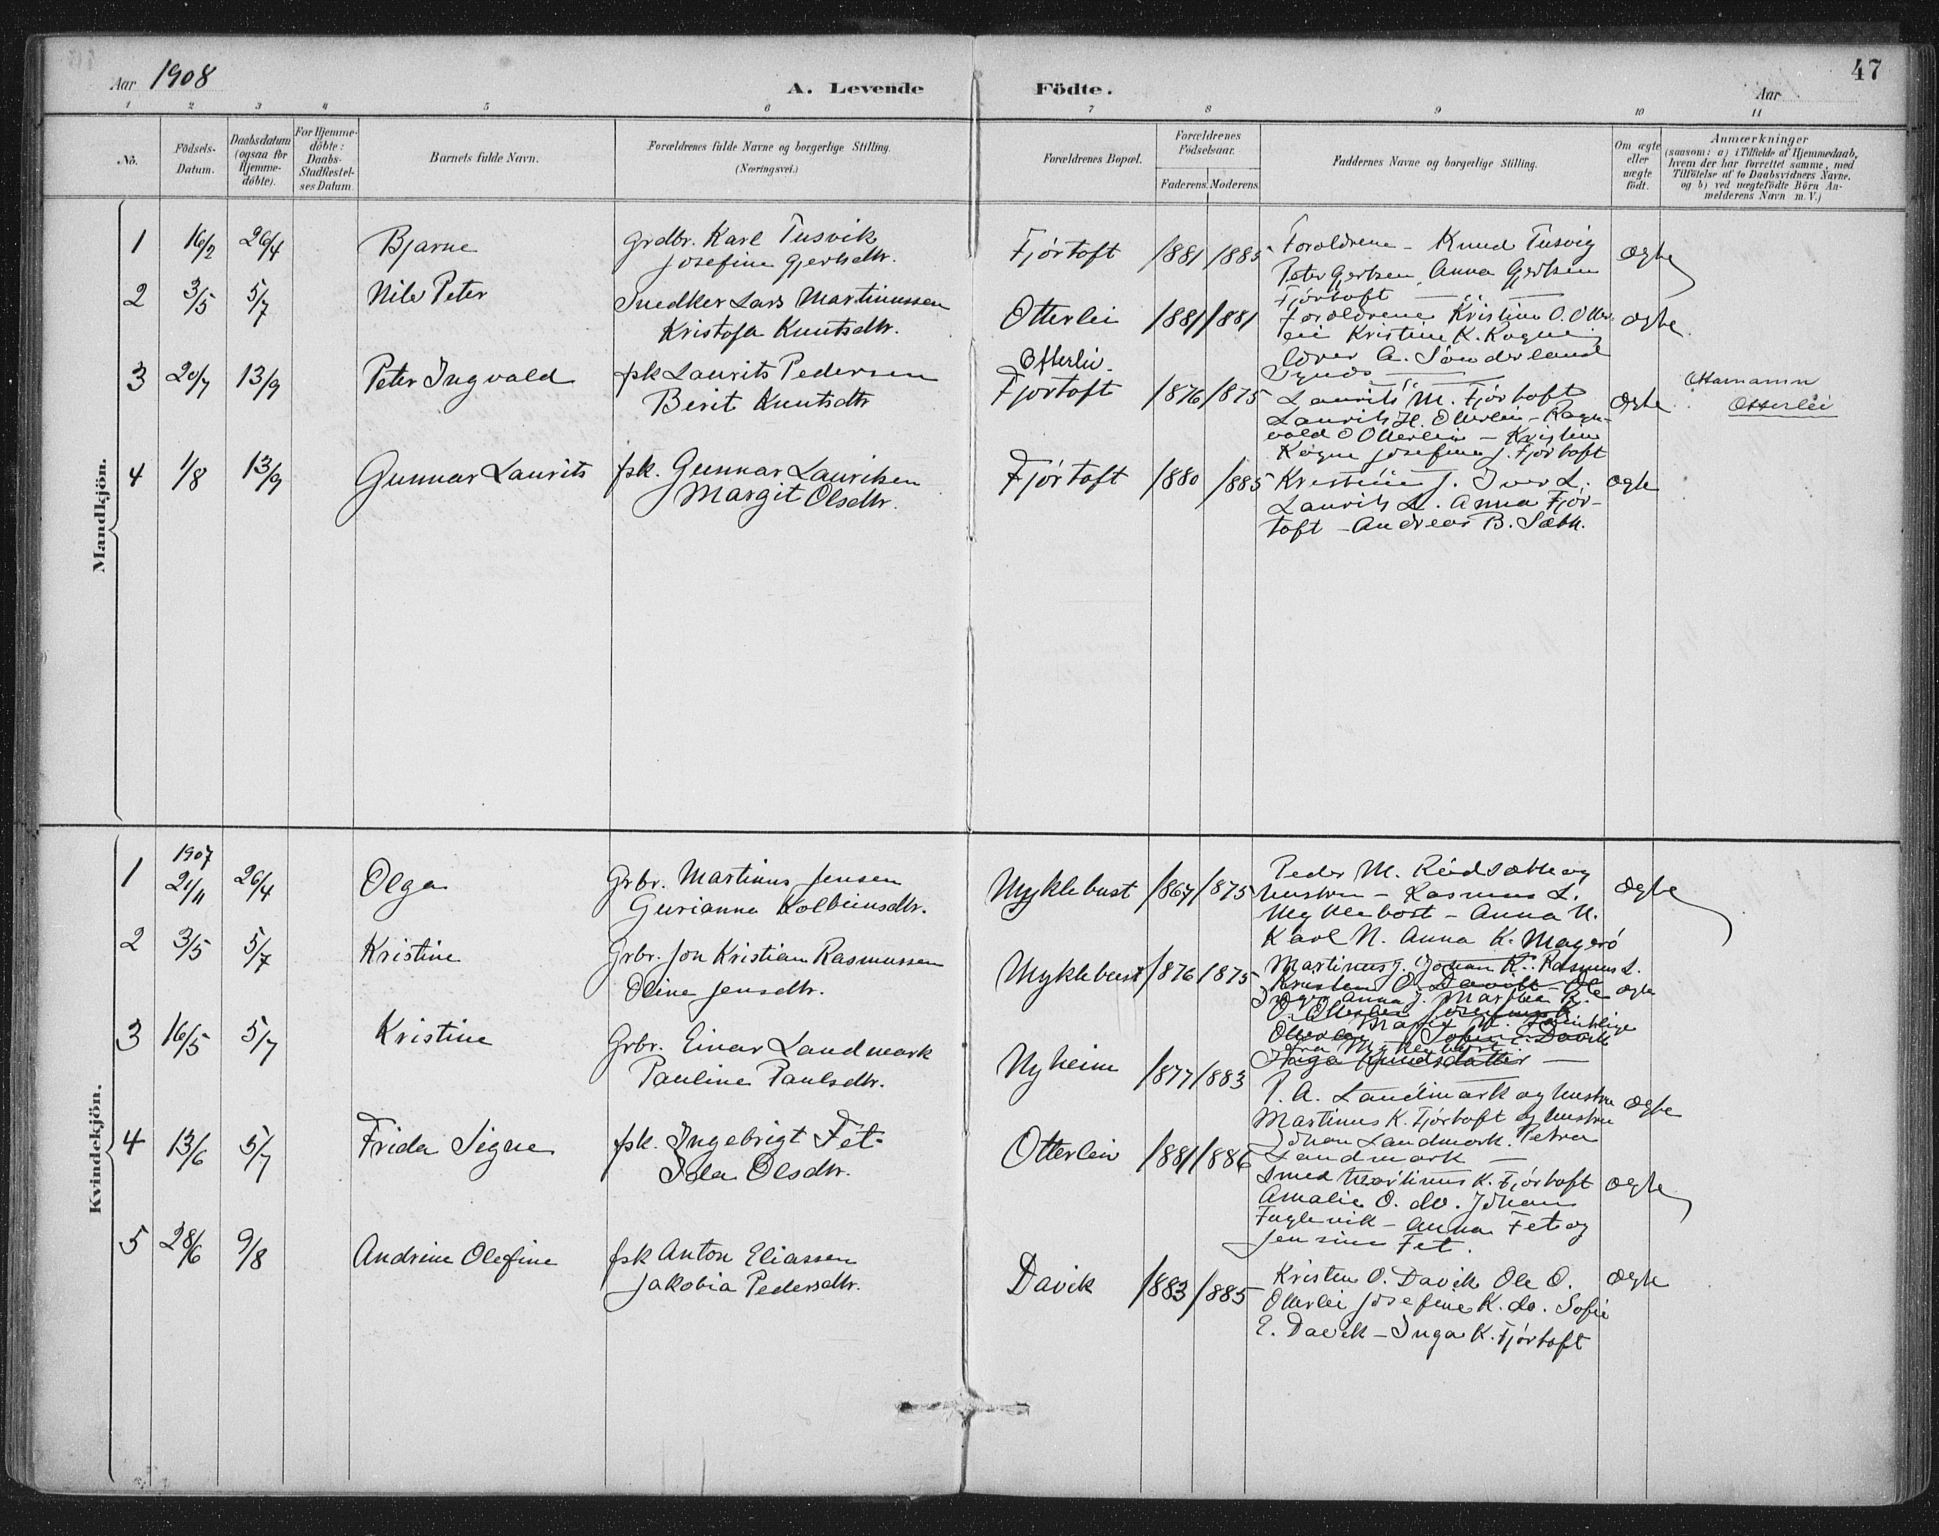 47
Aar 1908
A. Levende Födte.
Aar
1 2 3 4 5 6 7 8 9 10 11
No.
Födsels-
Datum.
Daabsdatum
(ogsaa for
Hjemme-
döbte).
For Hjemme-
döbte:
Daabs-
Stadfæstel-
ses Datum
Barnets fulde Navn.
Forældrenes fulde Navne og borgerlige Stilling.
(Næringsvei.)
Forældrenes Bopæl.
Forældrenes
Födselsaar.
Faderens. Moderens.
Faddernes Navne og borgerlige Stilling.
Om ægte
eller
uægte
födt.
Anmærkninger
(saasom: a) i Tilfælde af Hjemmedaab,
hvem der har forrettet samme, med
Tilföielse af to Daabsvidners Navne,
og b) ved uægtefödte Börn An-
melderens Navn m. V.)
Mandkjön.
1 16/2 26/4 Bjarne
Grdbr. Karl Tusvik
Josefine Gjertsdtr.
Fjørtoft 1881 1885
Forældrene - Knud Tusvig
Peter Gjertsen, Anna Gjertsen
Fjørtoft
Ægte
2 3/5 5/7 Nils Peter
Snedker Lars Martinussen
Kristofa Knutsdtr.
Otterlei 1881 1881
Forældrene Kristine O. Otter
lei Kristine K. Rogne
Iver A. Sønderland
Ægte
3 20/7 13/9 Peter Ingvald
fsk Laurits Pedersen
Berit Knutsdtr
Otterlei.
Fjørtoft 1876 1875
Laurits M. Fjørtoft
Laurits H. Otterlei - Ragn-
vald O Otterlei - Kristine
Rogne Josefine J. Fjørtoft
Ægte
Otterlei
4 1/8 13/9 Gunnar Laurits
fsk. Gunnar Lauritsen
Margit Olsdtr.
Fjørtoft 1880 1885
Kristine J. Iver L.
Laurits L. Anna Fjør-
toft - Andreas B. Sæth.
Ægte
Kvindekjön.
1 1907
21/11 26/4 Olga
Grbr. Martinus Jensen
Gurianna Kolbeinsdtr.
Myklebust 1867 1875
Peder M. Rødsæth og
hustru - Rasmus L.
Myklebost - Anna N.
Karl N. Anna K. Magerø
Ægte
2 3/5 5/7 Kristine
Grbr. Jon Kristian Rasmussen
Oline Jensdtr.
Myklebust 1876 1875
Martinus J. Johan K. Rasmus L.
Kristen O. Davik Ole
Anna J. Marthea R.
O. Otterlei Josefine K
Sofie E. Davik
Inga Knudsdatter
Ægte
3 16/5 5/7 Kristine
Grbr. Einar Landmark
Pauline Paulsdtr.
Nyheim 1877 1883
P. A. Landmark og hustru
Martinus K. Fjørtoft og hustru
Johan Landmark. Petra
Landmark
Ægte
4 13/6 5/7 Frida Signe
fsk. Ingebrigt Fet-
Ida Olsdtr.
Otterlei 1881 1886
Smed Martinus K. Fjørtoft
Amalie O. do. Johan
Fuglevik - Anna Fet og
Jensine Fet.
Ægte
5 28/6 9/8 Andrine Olefine
fsk Anton Eliassen
Jakobia Pedersdtr.
Davik 1883 1885
Kristen O. Davik Ole O.
Otterlei Josefine K. do. Sofie
E. Davik - Inga K. Fjørtoft
Ægte